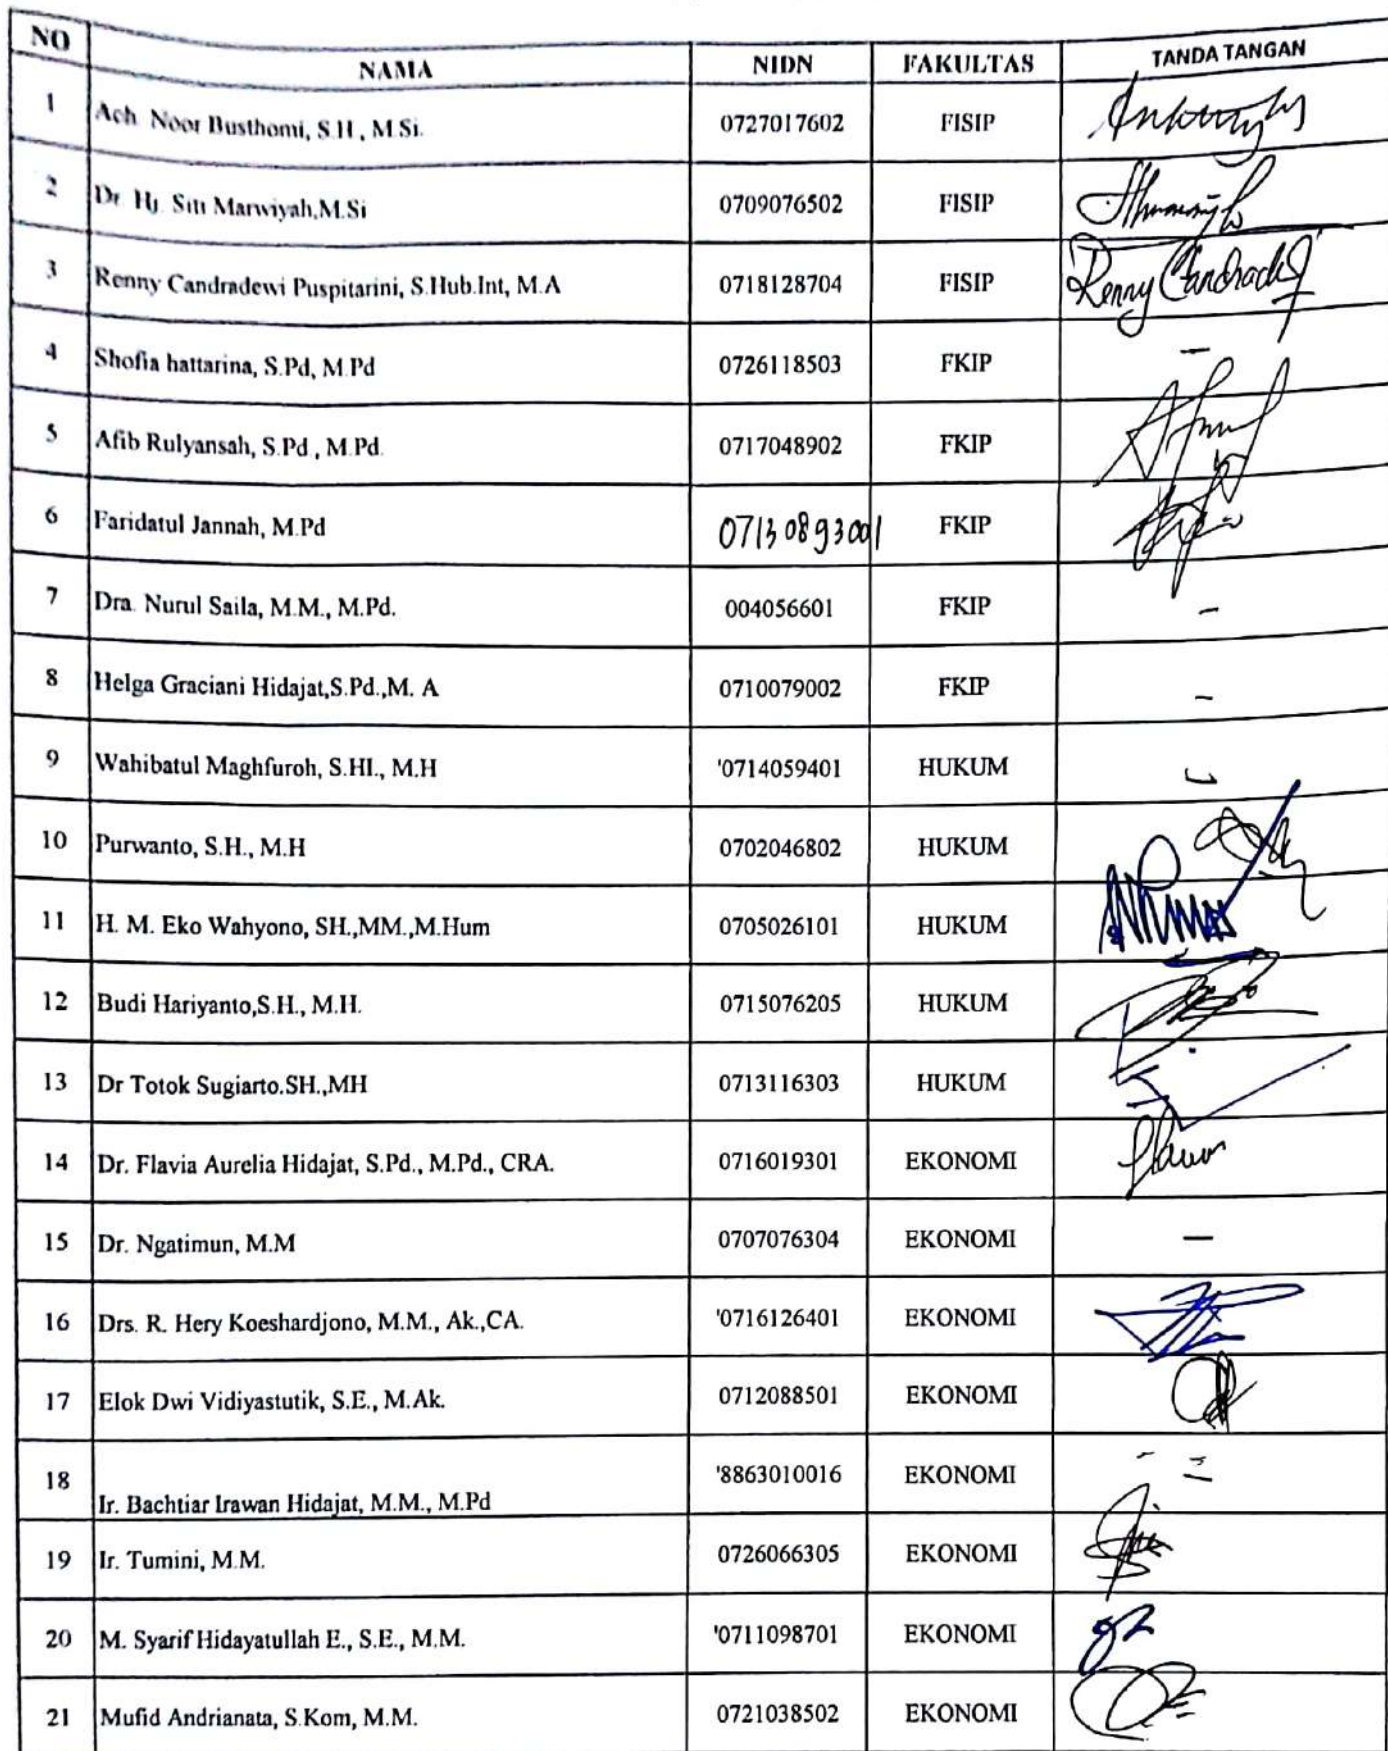 NO NAMA NIDN FAKULTAS TANDA TANGAN
1 Ach. Noor Busthomi, S.H., M.Si. 0727017602 FISIP
2 Dr. Hj. Siti Marwiyah,M.Si 0709076502 FISIP
3 Renny Candradewi Puspitarini, S.Hub.Int, M.A 0718128704 FISIP Renny Candradewi
4 Shofia hattarina, S.Pd, M.Pd 0726118503 FKIP -
5 Afib Rulyansah, S.Pd., M.Pd. 0717048902 FKIP
6 Faridatul Jannah, M.Pd 0713089300 FKIP
7 Dra. Nurul Saila, M.M., M.Pd. 004056601 FKIP -
8 Helga Graciani Hidajat,S.Pd.,M. A 0710079002 FKIP -
9 Wahibatul Maghfuroh, S.HI., M.H '0714059401 HUKUM -
10 Purwanto, S.H., M.H 0702046802 HUKUM
11 H. M. Eko Wahyono, SH.,MM.,M.Hum 0705026101 HUKUM
12 Budi Hariyanto,S.H., M.H. 0715076205 HUKUM
13 Dr Totok Sugiarto.SH.,MH 0713116303 HUKUM
14 Dr. Flavia Aurelia Hidajat, S.Pd., M.Pd., CRA. 0716019301 EKONOMI
15 Dr. Ngatimun, M.M 0707076304 EKONOMI -
16 Drs. R. Hery Koeshardjono, M.M., Ak.,CA. '0716126401 EKONOMI
17 Elok Dwi Vidiyastutik, S.E., M.Ak. 0712088501 EKONOMI
18 Ir. Bachtiar Irawan Hidajat, M.M., M.Pd '8863010016 EKONOMI
19 Ir. Tumini, M.M. 0726066305 EKONOMI
20 M. Syarif Hidayatullah E., S.E., M.M. '0711098701 EKONOMI
21 Mufid Andrianata, S.Kom, M.M. 0721038502 EKONOMI